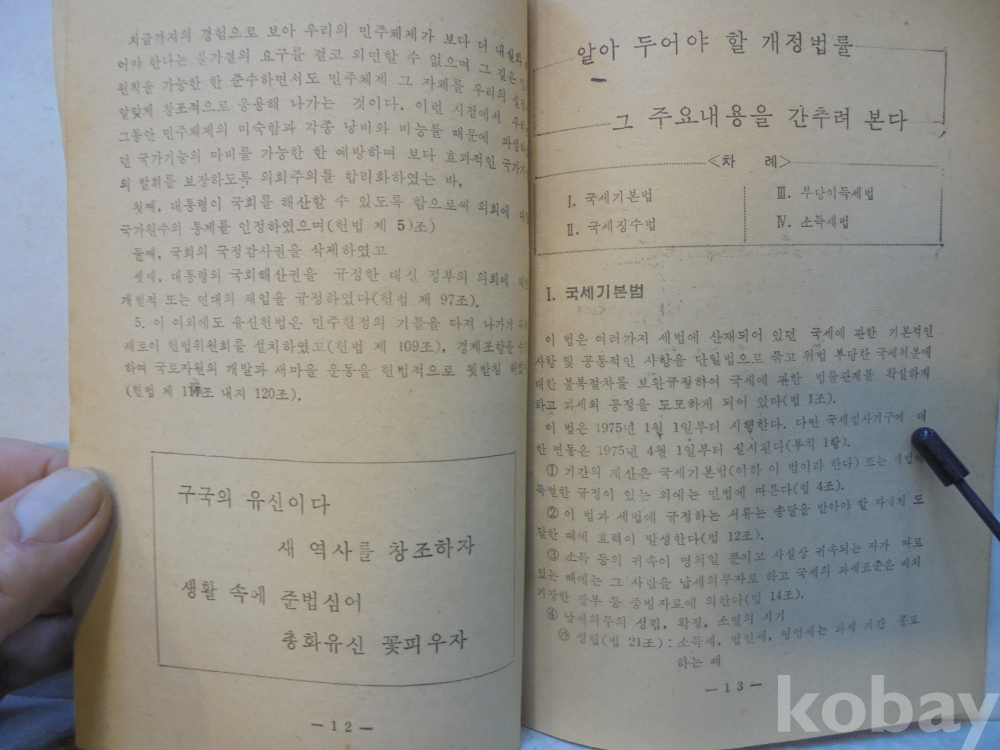 지금까지의 경험으로 보아 우리의 민주체제가 보다 더 내실화
어야 한다는 불가결의 요구를 결코 외면할 수 없으며 그 길은
원칙을 가능한 한 준수하면서도 민주체제 그 자체를 우리의
알맞게 창조적으로 응용해 나가는 것이다. 이런 시점에서
그동안 민주체제의 미숙함과 각종 낭비와 비능률 때문에
던 국가기능의 마비를 가능한 한 예방하며 보다 효과적인 국가
의 발휘를 보장하도록 의회주의를 합리화하였는 바,
첫째, 대통령이 국회를 해산할 수 있도록 함으로써 의회에
국가원수의 통제를 인정하였으며(헌법 제 5)조)
둘째, 국회의 국정감사권을 삭제하였고
셋째, 대통령의 국회해산권을 규정한 대신 정부의 의회에
개별적 또는 연대의 책임을 규정하였다(헌법 제 97조).
5. 이 이외에도 유신헌법은 민주헌정의 기틀을 다져 나가기
새로이 헌법위원회를 설치하였고(헌법 제 109조), 경제조항을
하여 국토자원의 개발과 새마을 운동을 헌법적으로 뒷받침
(헌법 제 117조 내지 120조).
구국의 유신이다
새 역사를 창조하자
생활 속에 준법심어
총화유신 꽃피우자
— 1 2 —
알아 두어야 할 개정법률
그 주요내용을 간추려 본다
<차 례>
Ⅰ. 국세기본법
Ⅱ. 국세징수법
Ⅲ. 부당이득세법
Ⅳ. 소득세법
Ⅰ. 국세기본법
이 법은 여러가지 세법에 산재되어 있던 국세에 관한 기본적인
사항 및 공통적인 사항을 단일법으로 묶고 위법 부당한 국세처분에
대한 불복절차를 보완규정하여 국세에 관한 법률관계를 확실하게
하고 과세의 공정을 도모하게 되어 있다(법 1조).
이 법은 1975년 1월 1일부터 시행한다. 다만 국세심사기구에 대
한 변동은 1975년 4월 1일부터 실시된다(부칙 1항).
① 기간의 계산은 국세기본법(이하 이 법이라 한다) 또는 세법에
특별한 규정이 있는 외에는 민법에 따른다(법 4조).
② 이 법과 세법에 규정하는 서류는 송달을 받아야 할 자에게 도
달한 때에 효력이 발생한다(법 12조).
③ 소득 등의 귀속이 명의일 뿐이고 사실상 귀속되는 자가 따로
있는 때에는 그 사람을 납세의무자로 하고 국세의 과세표준은 비치
기장한 장부 등 증빙자료에 의한다(법 14조).
④ 납세의무의 성립, 확정, 소멸의 시기
㉮ 성립(법 21조) : 소득세, 법인세, 영업세는 과세 기간 종료
하는 때
— 1 3 —
kobay